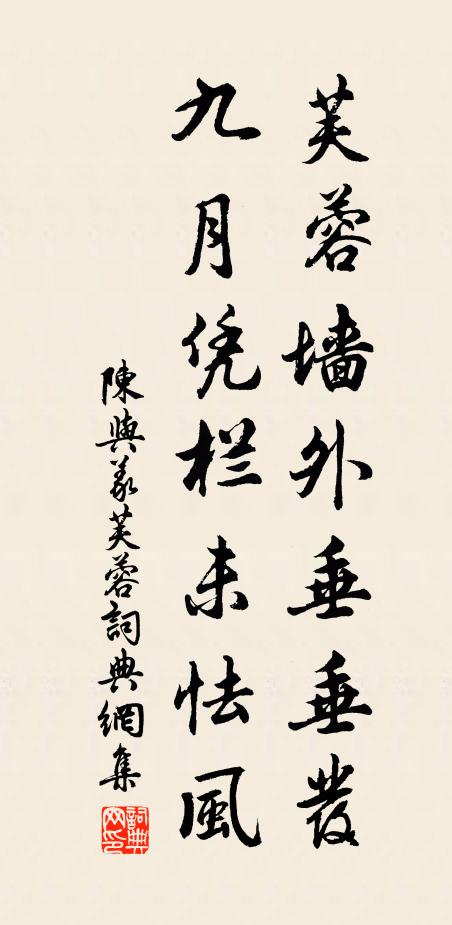 芙蓉墙外垂垂發
九月凭栏未怯風
陳與義芙蓉詞典網集
詞典网印